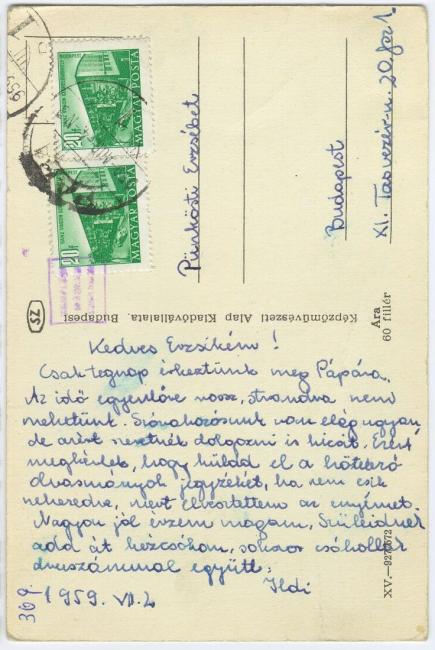 Kedves Erzsikém!
Csak tegnap érkeztünk meg Pápára.
Az idő egyenlőre rossz, strandra nem
mehetünk. Szórakozásunk van elég ugyan,
de azért szeretnék dolgozni is kicsit. Ezért
megkérlek, hogy küldd el a kötelező
olvasmányok jegyzékét, ha nem esik
nehezedre, mert elvesztettem az enyémet.
Nagyon jól érzem magam, Szüleidnek
add át kézcsókom, sokszor csókollak
együtt:
Ildi
1959. VII. 2
Pünkösti Erzsébet
Budapest
XI. Tas vezér-u. 20.
Képzőművészeti Alap Kiadóvállalata, Budapest
SZ
Ára
60 fillér
XV.
MAGYAR POSTA
20f
BUDAPEST
MAGYAR POSTA
20f
959